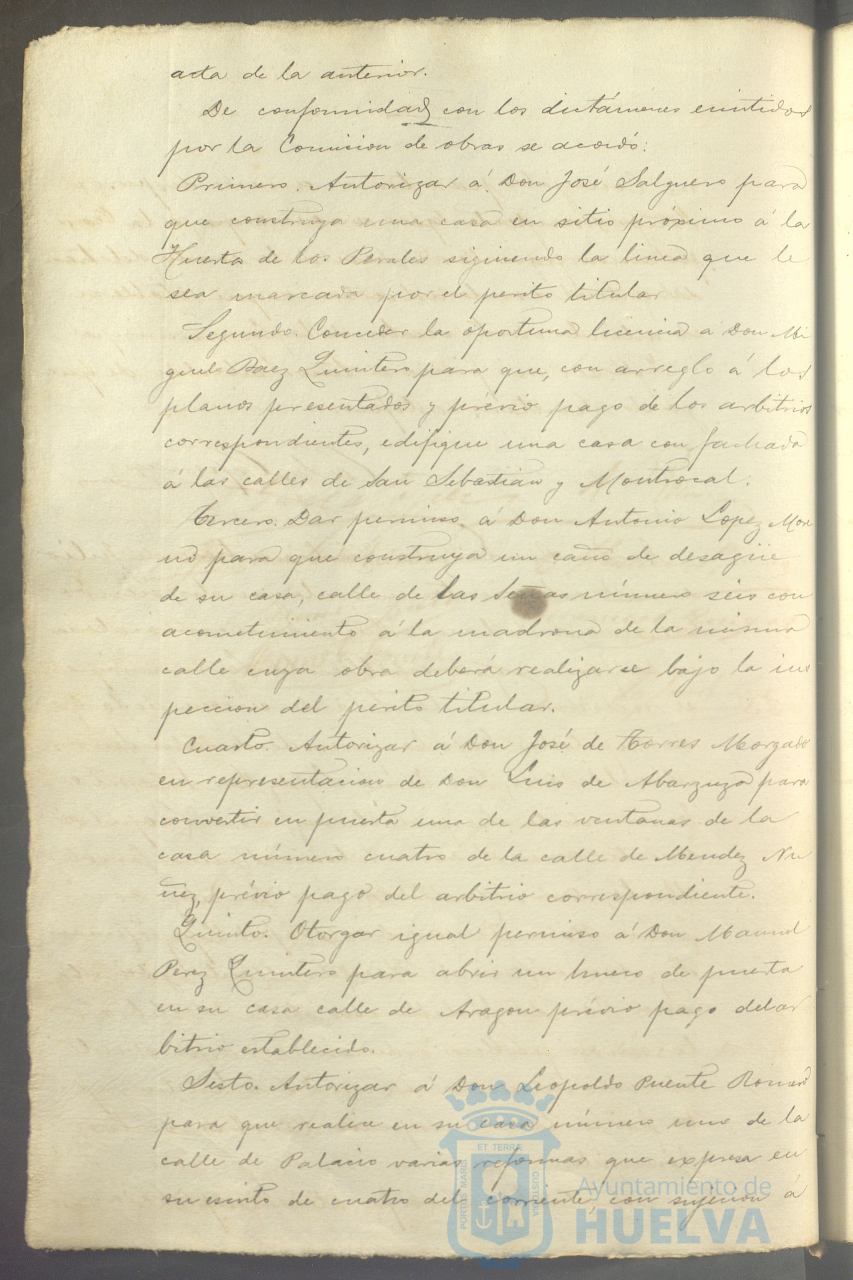 acta de la anterior.
De conformidad con los dictámenes emitidos
por la Comision de obras se acordó:
Primero. Autorizar á Don José Salguero para
que construya una casa en sitio próximo á la
Huerta de los Perales siguiendo la linea que le
sea marcada por el perito titular
Segundo. Conceder la oportuna licencia á Don Mi
guel Baez Quintero para que, con arreglo á los
planos presentados y prévio pago de los arbitrios
correspondientes, edifique una casa con fachada
á las calles de San Sebastian y Montrocal.
Tercero. Dar permiso á Don Antonio Lopez More
no para que construya un caño de desagüe
de su casa, calle de las Señas número seis con
acometimiento á la madrona de la misma
calle cuya obra deberá realizarse bajo la ins
peccion del perito titular.
Cuarto. Autorizar á Don José de Torres Morgado
en representacion de Don Luis de Abarzuza para
convertir en puerta una de las ventanas de la
casa número cuatro de la calle de Mendez Nu
ñez, prévio pago del arbitrio correspondiente.
Quinto. Otorgar igual permiso á Don Manuel
Perez Quintero para abrir un hueco de puerta
en su casa calle de Aragon prévio pago del ar
bitrio establecido.
Sesto. Autorizar á Don Leopoldo Puente Romero
para que realice en su casa número uno de la
calle de Palacio varias reformas que expresa en
su escrito de cuatro del corriente, con sujecion á
PORTUS MARIS ET TERRÆ CUSTODIA
Ayuntamiento de
HUELVA